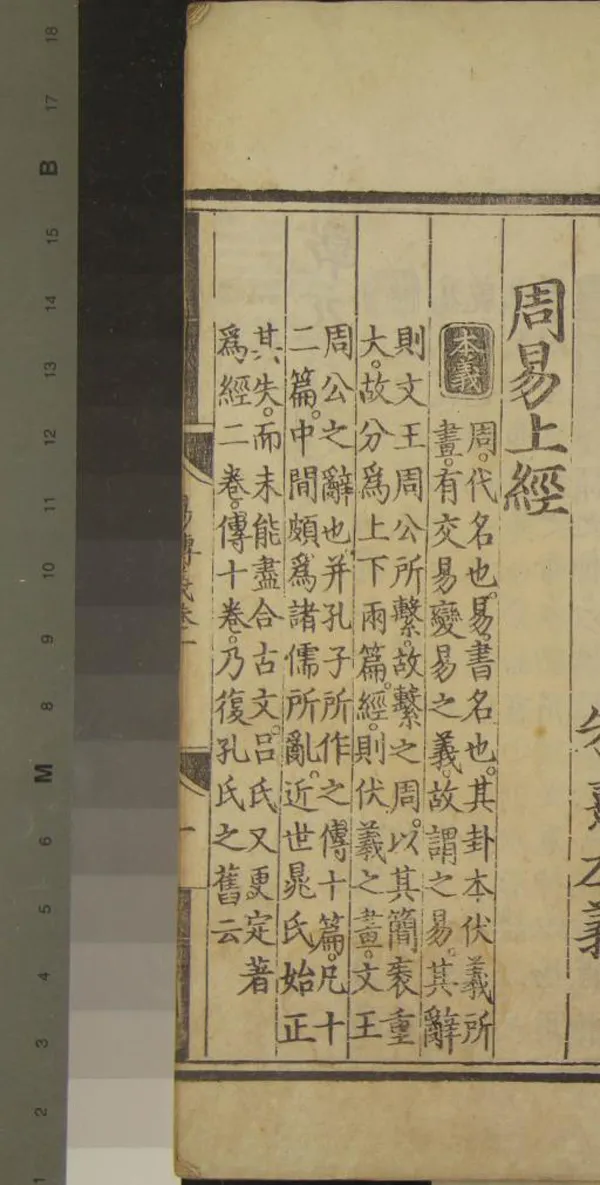 朱熹本義
周易上經
本義
周。代名也。易。書名也。其卦本伏羲所
畫。有交易變易之義。故謂之易。其辭
則文王周公所繫。故繫之周。以其簡袠重
大。故分爲上下兩篇。經。則伏羲之畫。文王
周公之辭也。并孔子所作之傳十篇。凡十
二篇。中間頗爲諸儒所亂。近世晁氏始正
其失。而未能盡合古文。呂氏又更定著
爲經二卷。傳十卷。乃復孔氏之舊云
易傳義卷一
一
18 17 B 15 14 13 12 11 10 9 8 M 6 5 4 3 2 1